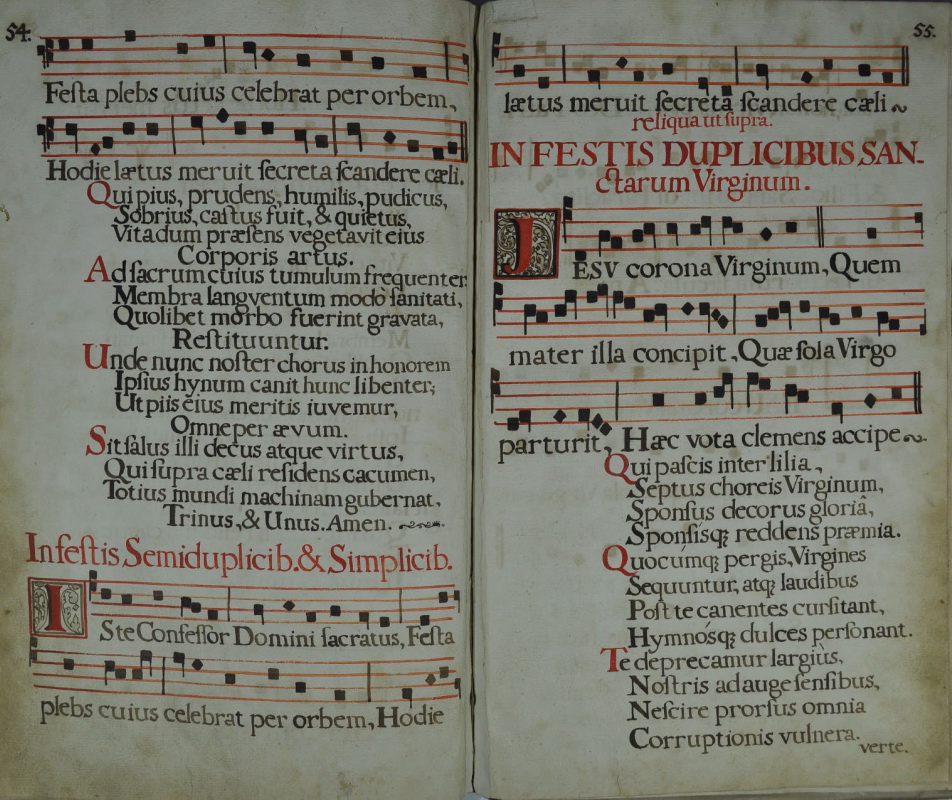 54.
Festa plebs cuius celebrat per orbem,
Hodie lætus meruit secreta scandere cæli.
Qui pius, prudens, humilis, pudicus,
Sobrius, castus fuit, & quietus,
Vita dum præsens vegetavit eius
Corporis artus.
Ad sacrum cuius tumulum frequenter
Membra langventum modò sanitati,
Quolibet morbo fuerint gravata,
Restituuntur.
Unde nunc noster chorus in honorem
Ipsius hynum canit hunc libenter;
Ut piis eius meritis iuvemur,
Omne per ævum.
Sit salus illi decus atque virtus,
Qui supra cæli residens cacumen,
Totius mundi machinam gubernat,
Trinus, & Unus. Amen.
In festis Semiduplicib. & Simplicib.
ISte Confessor Domini sacratus, Festa
plebs cuius celebrat per orbem, Hodie
55.
lætus meruit secreta scandere cæli
reliqua ut supra.
IN FESTIS DUPLICIBUS SAN-
ctarum Virginum.
JESV corona Virginum, Quem
mater illa concipit, Quæ sola Virgo
parturit, Hæc vota clemens accipe
Qui pascis inter lilia,
Septus choreis Virginum,
Sponsus decorus gloriâ,
Sponsisq; reddens præmia.
Quocúmq; pergis, Virgines
Sequuntur, atq; laudibus
Post te canentes cursitant,
Hymnósq; dulces personant.
Te deprecamur largiùs,
Nostris adauge sensibus,
Nescire prorsus omnia
Corruptionis vulnera.
verte.